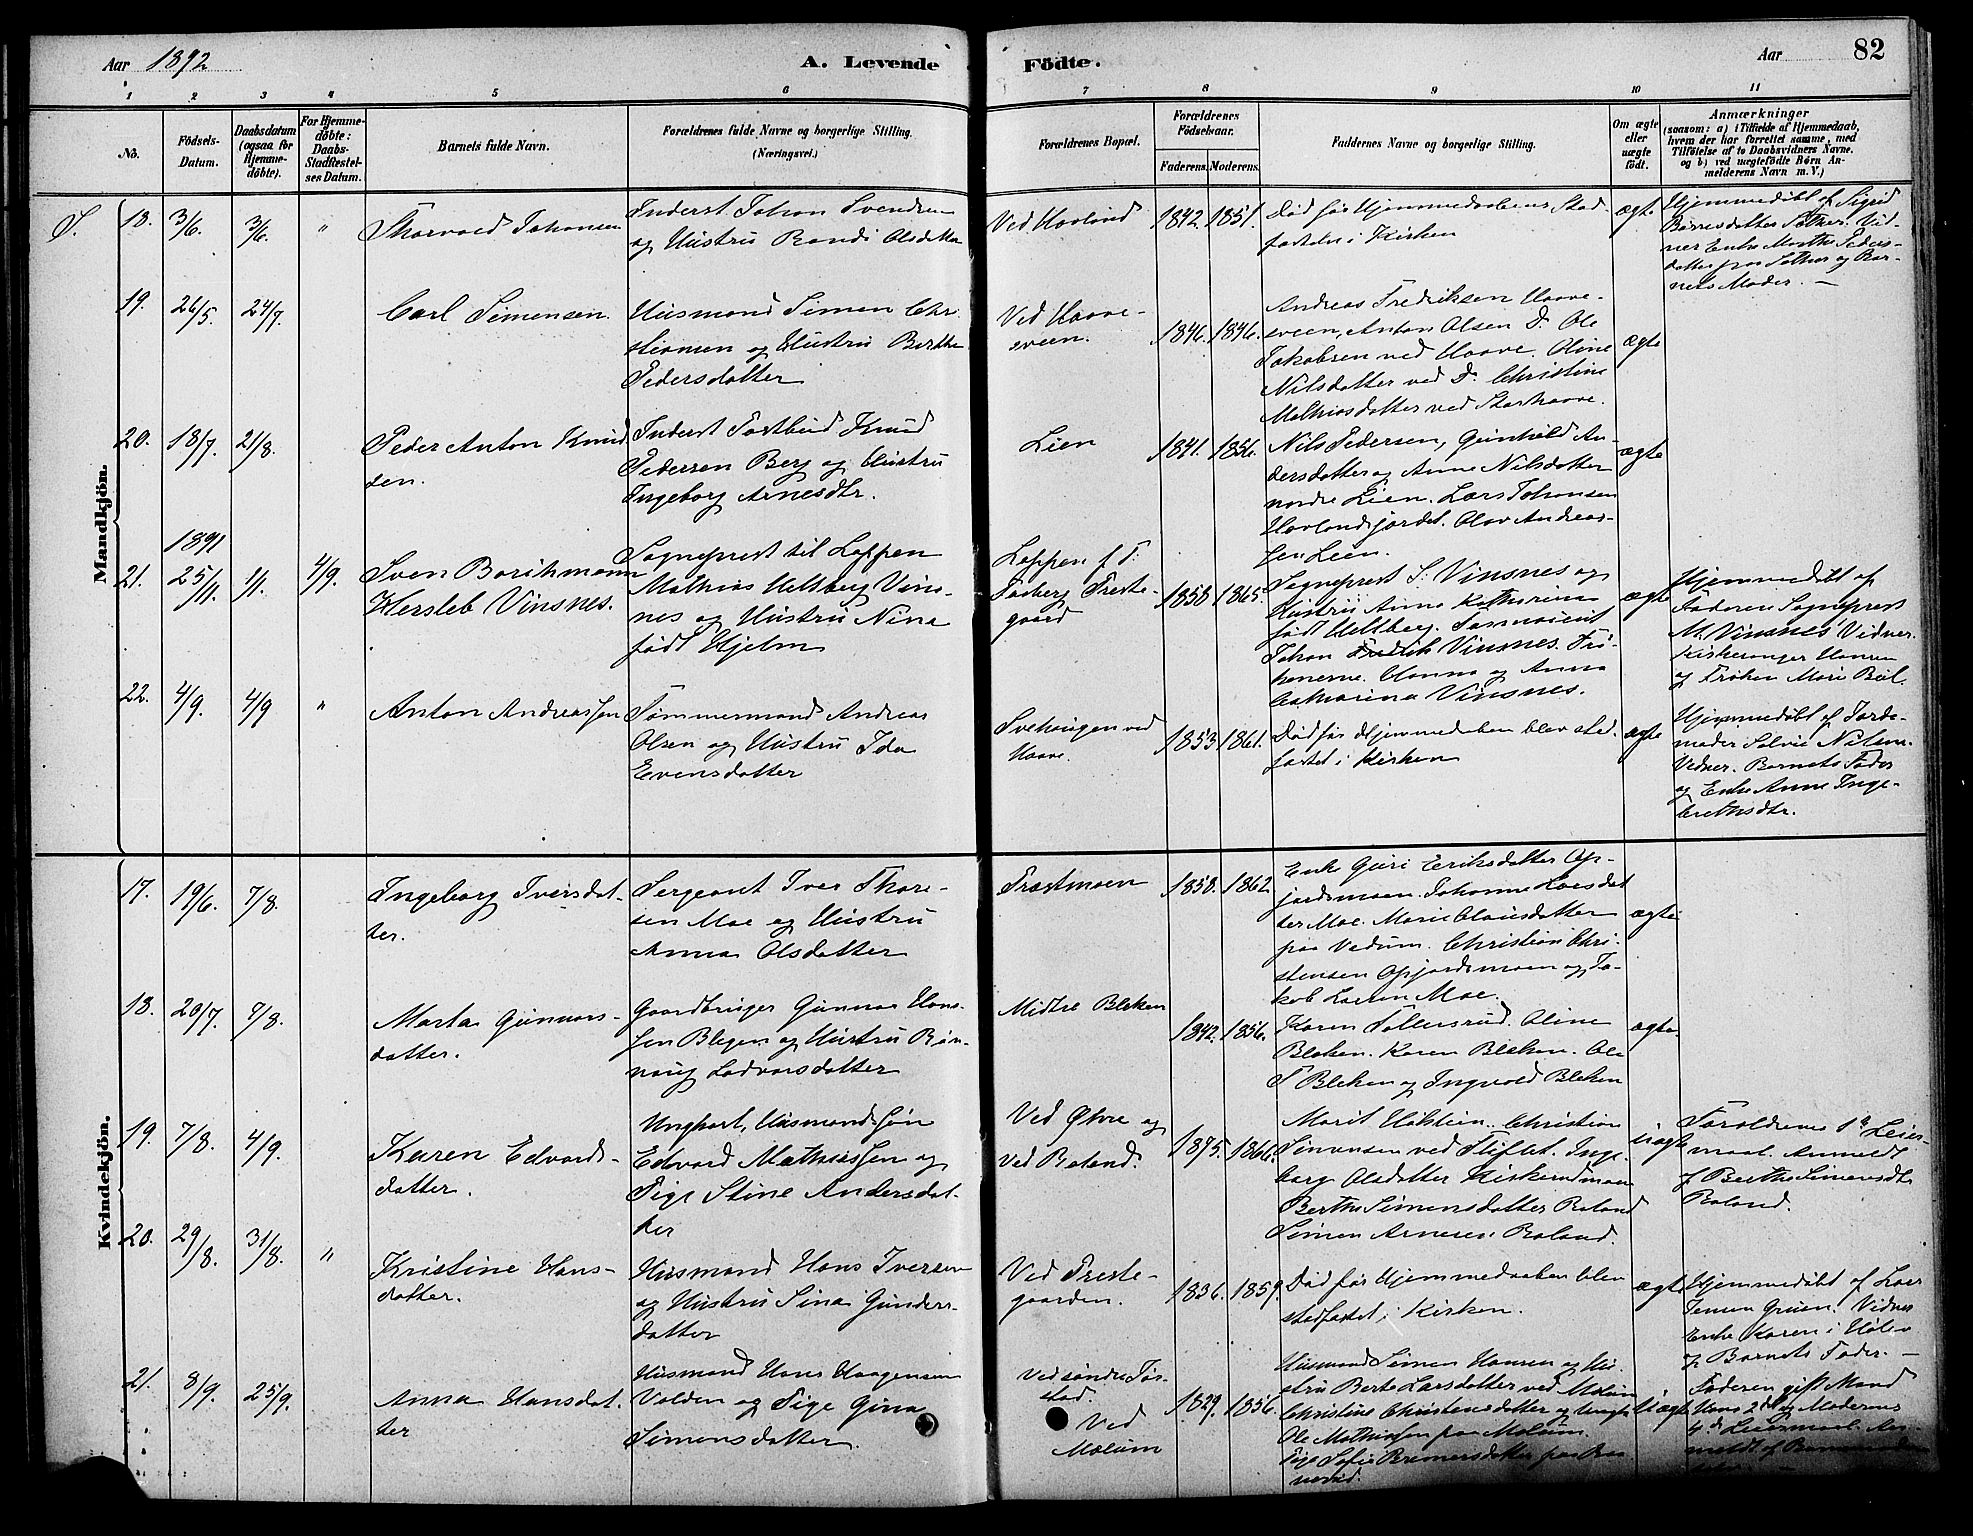 Aar 1892
A. Levende
Födte.
Aar
82
1
2
3
4
5
6
7
8
9
10
11
No.
Födsels-
Datum.
Daabsdatum
(ogsaa for
Hjemme-
døbte).
For Hjemme-
døbte:
Daabs-
Stadfæstel-
ses Datum.
Barnets fulde Navn.
Forældrenes fulde Navne og borgerlige Stilling.
(Næringsvei.)
Forældrenes Bopæl.
Forældrenes
Födselsaar.
Faderens.
Moderens.
Faddernes Navne og borgerlige Stilling.
Om ægte
eller
uægte
født.
Anmærkninger
(saasom: a) i Tilfælde af Hjemmedaab,
hvem der har forrettet samme, med
Tilføielse af to Daabsvidners Navne,
og b) ved uægtefødte Börn An-
melderens Navn m. V.)
Mandkjön.
S.
18.
3/6.
3/6.
"
Thorvald Johansen
Inderst Johan Svendsen
og Hustru Randi Olsdatter
Ved Hovland
1842.
1851.
Død før Hjemmedaabens Stad-
fæstelse i Kirken
ægte
Hjemmedøbt af Sigrid
Vid-
ner Enke Marthe Peders-
datter paa og Bar-
nets Moder. —
19.
26/5.
24/7
Carl Simensen.
Husmand Simen Chr-
stiansen og Hustru Berthe
Pedersdatter
Ved Haave-
sveen.
1846.
1846.
Andreas Fredriksen Haave-
sveen, Anton Olsen D. Ole
Jakobsen ved Haave. Oline
Nilsdatter ved D. Christine
Mathiasdatter ved Storhaave.
ægte
20.
18/7.
21/8.
Peder Anton Knud-
sen.
Inderst Postbud Knud
Pedersen Berg og Hustru
Ingeborg Arnesdtr.
Lien
1841.
1856.
Nils Pedersen, Gunhild An-
dersdatter og Anne Nilsdatter
nordre Lien. Lars Johansen
Hovlandsjordet. Olav Andreas-
sen Lien.
ægte
21.
1891
25/11.
1/1.
4/9.
Sven
Hersleb Vinsnes.
Sogneprest til Loppen
Mathias Heltberg Vins-
nes og Hustru Nina
født Hjelm
Loppen f. T.
Faaberg Preste-
gaard
1858
1865.
Sogneprest S. Vinsnes og
Hustru Anna Katharina
født Heltberg.
Johan Vinsnes. Frø-
kenerne. Hanna og Anna
Catharina Vinsnes.
ægte
Hjemmedøbt af
Faderen Sogneprest
M. Vinsnes' Vidner.
Kirkesanger Hansen
og Frøken
22.
4/9.
4/9
"
Anton Andreassen
Tømmermand Andreas
Olsen og Hustru Ida
Evensdatter
Svehaugen ved
Haave.
1853
1861.
Død før Hjemmedaaben blev stad-
fæstet i Kirken
ægte
Hjemmedøbt af Jorde-
moder Nilsen.
Vidner. Barnets Fader
og Enke Anne Inge-
brethsdtr.
Kvindekjön.
17.
19/6.
7/8.
Ingeborg Iversdat-
ter.
Sergeant Iver Thore-
sen Moe og Hustru
Anna Olsdatter
Træstmoen
1858.
1862.
Enke Guri Eriksdatter Op-
jordsmoen. Johanne Larsdat
ter Moe. Marie Clausdatter
paa Vedum. Christian Chri-
stensen Opjordsmoen og Ja-
kob Larsen Moe.
ægte
18.
20/7.
7/8.
Marta Gunnars-
datter.
Gaardbruger Gunnar Hans-
sen Blegen og Hustru Røn-
naug Lodvarsdatter
Midtre Bleken
1842.
1856.
Karen Tollersrud. Oline
Bleken. Karen Bleken. Ole
T Bleken og Ingvald Bleken
ægte
19.
7/8.
4/9.
Karen Edvards-
datter.
Ungkart, Husmandssøn
Edvard Mathiassen og
Pige Stine Andersdat-
ter
Ved Øvre og
Ved Roland.
1875.
1866.
Marit Christian
Simensen ved Stiftet. Inge-
borg Olsdatter
Berthe Simensdatter Roland
Simen Arnesen Roland.
uægte
Forældrenes 1ste Leier-
maal. Anmeldt
af Berthe Simensdtr
Roland.
20.
29/8.
31/8.
"
Kristine Hans-
datter.
Husmand Hans Iversen
og Hustru Sina Gunders-
datter
Ved Preste-
gaarden.
1836.
1859.
Død før Hjemmedaaben blev
stadfæstet i Kirken.
ægte
Hjemmedøbt af Lars
Jensen Vidner
Enke Karen i
og Barnets Fader. —
21.
8/9.
25/9.
Anna Hansdat-
ter
Husmand Hans Haagensen
Volden og Pige Gina
Simensdatter.
Ved søndre Jør-
stad.
Ved
Molum
1829.
1856.
Husmand Simen Hansen og Hu-
stru Berte Larsdatter ved Molum
Christine Christensdatter og Ungk.
Ole Mathisen paa Molum.
Pige Sofie paa
uægte
Faderen gift Mand
Hans 2det og Moderens
4de Leiermaal. An-
meldt af